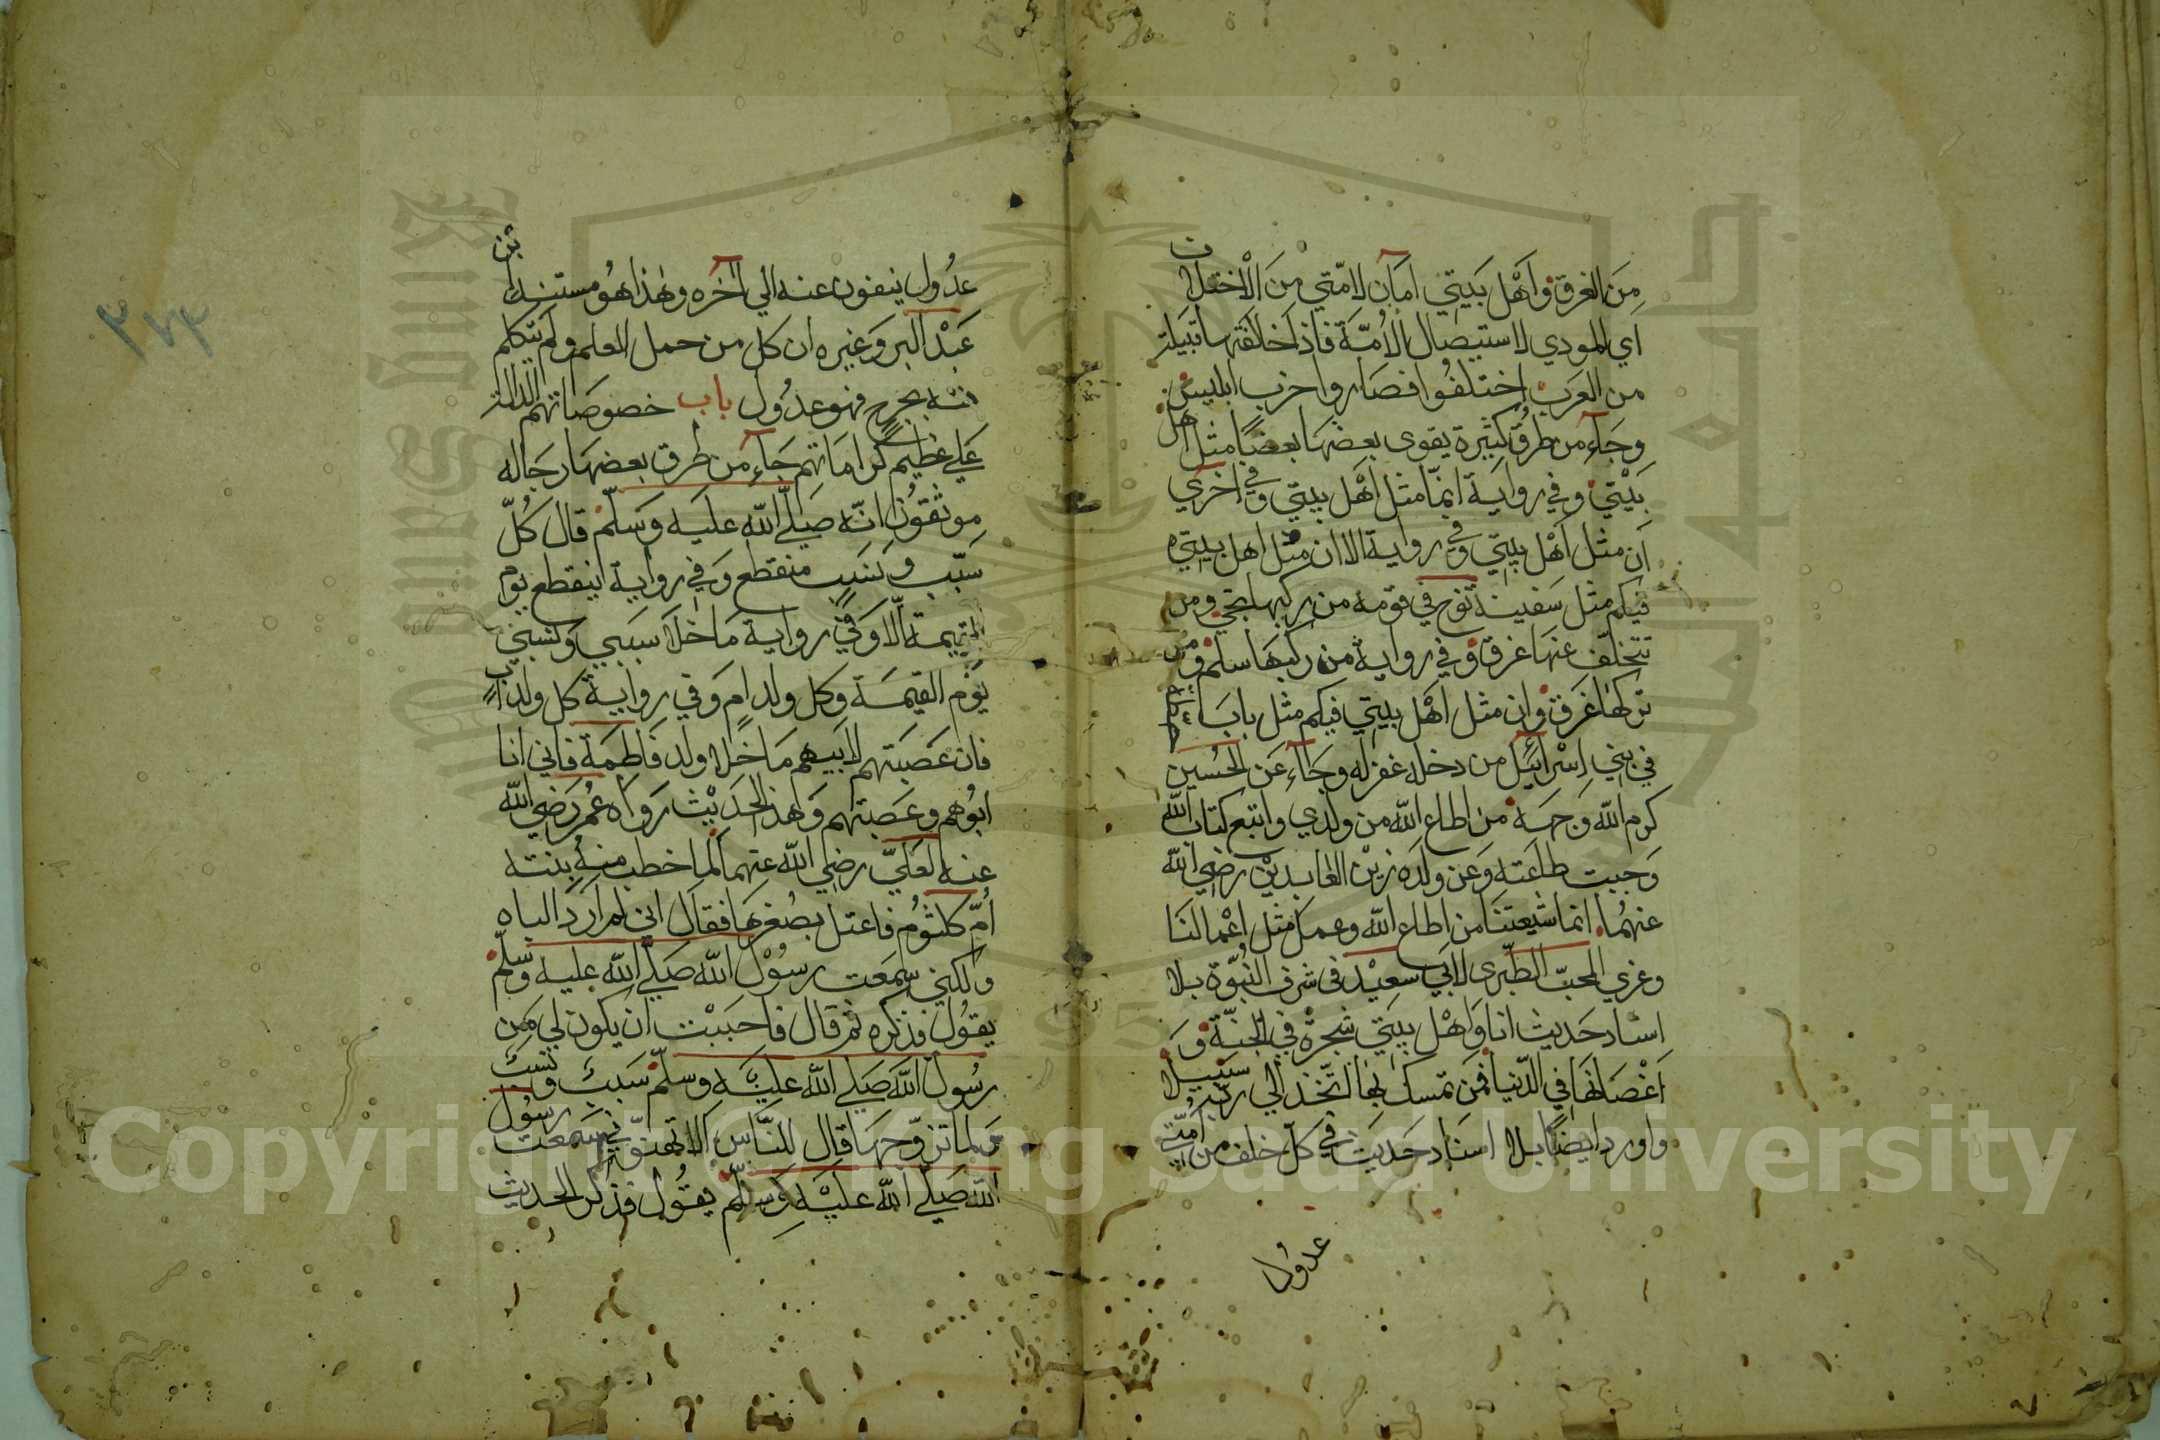 من الغرق واهل بيتي امان لامتي من الاختلاف
اي المودي لاستيصال الامة فاذا خالفتها قبيلة
من العرب اختلفوا فصاروا حزب ابليس
وجآء من طرق كثيرة يقوى بعضها بعضا مثل اهل
بيتي وفي رواية انما مثل اهل بيتي وفي اخرى
ان مثل اهل بيتي وفي رواية الا ان مثل اهل بيتي
فيكم مثل سفينة نوح في قومه من ركبها نجي ومن
تخلف عنها غرق وفي رواية من ركبها سلم ومن
تركها غرق وان مثل اهل بيتي فيكم مثل باب حطة
في بني اسرآئيل من دخله غفر له وجآء عن الحسين
كرم الله وجهه من اطاع الله من ولدي واتبع كتاب الله
وجبت طاعته وعن ولده زين العابدين رضي الله
عنهما انما شيعتنا من اطاع الله وعمل مثل اعمالنا
وعزي المحب الطبرى لابي سعيد في شرف النبوة بلا
اسناد حديث انا واهل بيتي شجرة في الجنة و
اغصانها في الدنيا فمن تمسك بها اتخذ الي ربه سبيلا
واورد ايضا بلا اسناد حديث في كل خلف من امتي
عدول
عدول ينفون عنه الي آخره وهذا هو مستند ابن
عبد البر وغيره ان كل من حمل العلم ولم يتكلم
فيه بجرح فهو عدول باب خصوصاتهم الدالة
علي عظيم كراماتهم جآء من طرق بعضها رجاله
موثقون انه صلي الله عليه وسلم قال كل
سبب ونسب منقطع وفي رواية ينقطع يوم
القيمة الا وفي رواية ما خلا سببي ونسبي
يوم القيمة وكل ولد ام وفي رواية كل ولد اب
فان عصبتهم لابيهم ما خلا ولد فاطمة فاني انا
ابوهم وعصبتهم وهذا الحديث رواه عمر رضي الله
عنه لعلي رضي الله عنهما لما خطب منه بنته
ام كلثوم فاعتل بصغرها فقال اني لم ارد الباه
ولكني سمعت رسول الله صلي الله عليه وسلم
يقول فذكره ثم قال فاحببت ان يكون لي من
رسول الله صلي الله عليه وسلم سبب ونسب
ولما تزوجها قال للناس الا تهنوني سمعت رسول
الله صلي الله عليه وسلم يقول فذكر الحديث
٣٧٣
Copyright © King Saud University